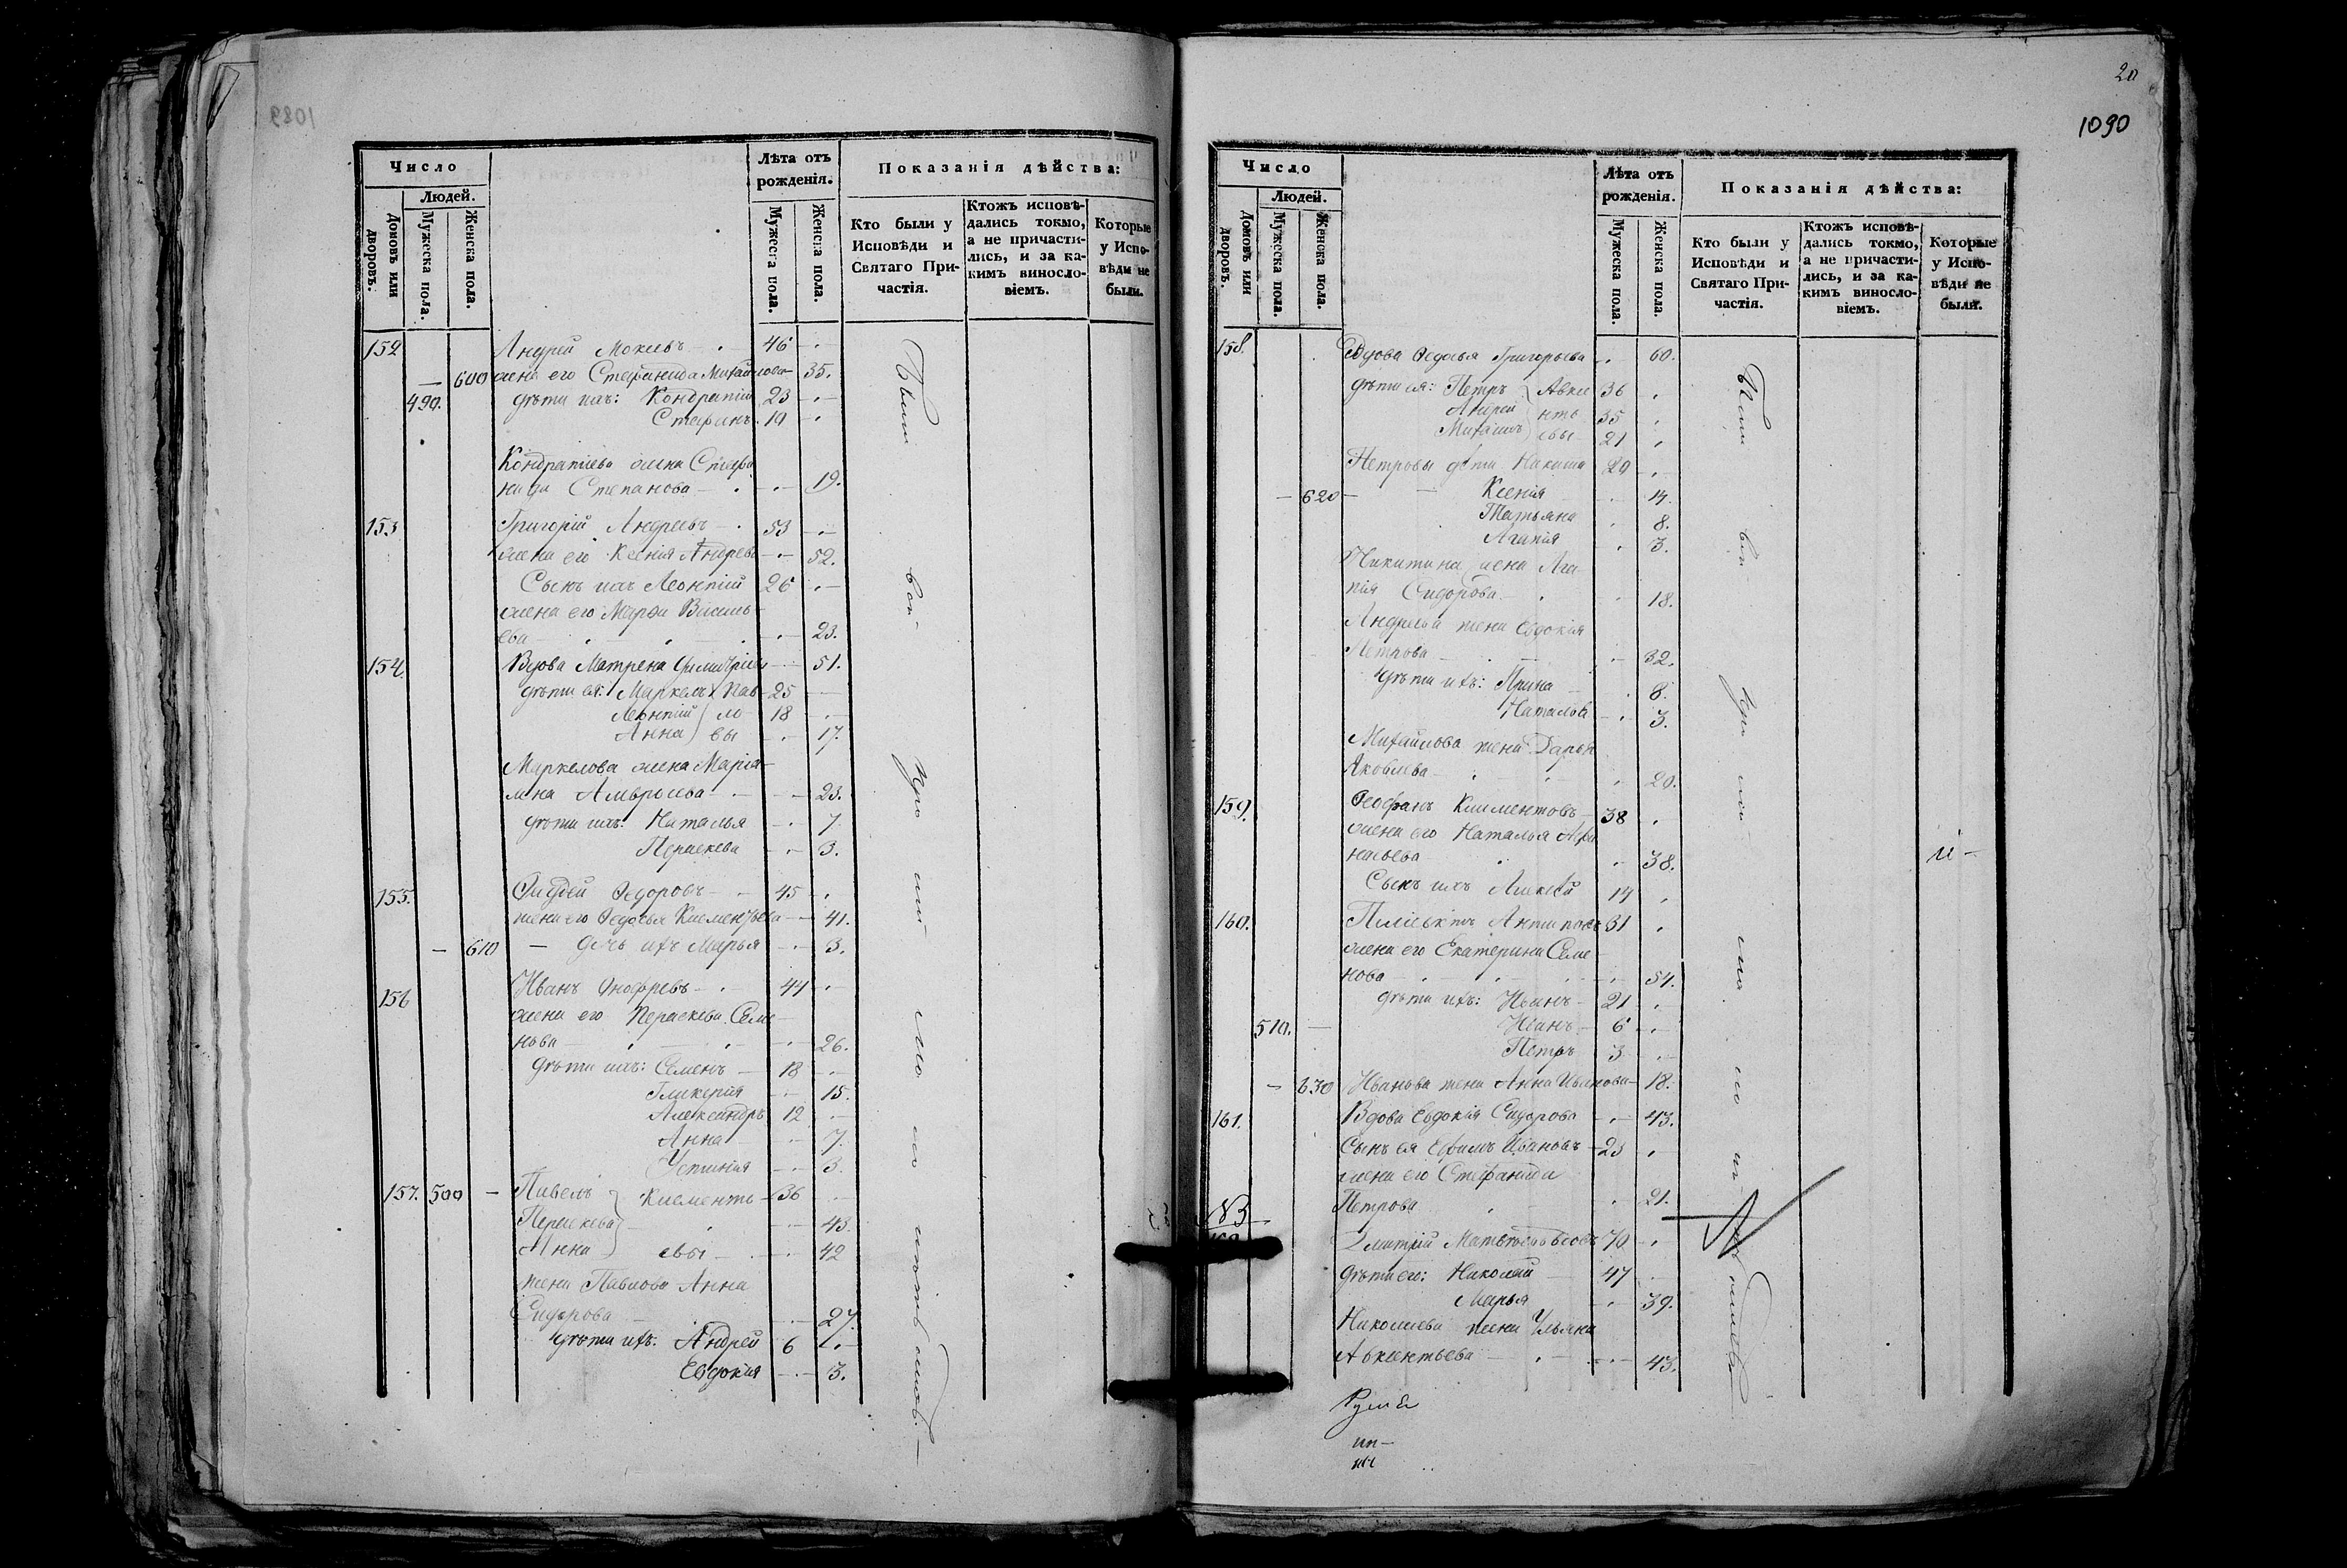 1089
Число
Лѣта отъ рожденія.
Показанія дѣйства:
Людей.
Домовъ или дворовъ.
Мужеска пола.
Женска пола.
Мужеска пола.
Женска пола.
Кто были у Исповѣди и Святаго При- частія.
Ктожъ исповѣ- дались токмо, а не причасти- лись, и за ка- кимъ винносло- віемъ.
Которые у Испо- вѣди не были.
152 Андрей Мокеевъ 46
600 жена его Стефанида Михайлова 35.
490. дѣти ихъ: Кондратій 23
Стефанъ 19
Кондратіева жена Стефа
нида Степанова 19.
153 Григорій Андреевъ 53
жена его Ксенія Андреева 52.
Сынъ ихъ Леонтій 26
жена его Марфа Василь
ева 23.
154. Вдова Матрена Димитріева 51.
дѣти ея: Маркелъ Пав 25
Леонтій ло 18
Анна вы 17.
Маркелова жена Маріа
мна Амвросева 23.
дѣти ихъ: Наталья 7
Параскева 3.
155. Федоровъ 45
жена его Федосья Климентьева 41.
610 дочь ихъ Марья 3.
156 Иванъ Онофреевъ 44
жена его Параскева Семе
нова 26.
дѣти ихъ: Семенъ 18
Гликерія 15.
Александръ 12
Анна 7.
Устинія 3.
157. 500 Павелъ Климентъ 36
Параскева 43.
Анна евы 42
жена Павлова Анна
Сидорова 27.
дѣти ихъ: Андрей 6
Евдокія 3.
20
1090
Число
Лѣта отъ рожденія.
Показанія дѣйства:
Людей.
Домовъ или дворовъ.
Мужеска пола.
Женска пола.
Мужеска пола.
Женска пола.
Кто были у Исповѣди и Святаго При- частія.
Ктожъ исповѣ- дались токмо, а не причасти- лись, и за ка- кимъ винносло- віемъ.
Которые у Испо- вѣди не были.
158. Вдова Федосья Григорьева 60.
дѣти ея: Петръ Авкс 36
Андрей нть 35
Михаилъ евы 21
Петровы дѣти Никита 20
620 Ксенія 14.
Татьяна 8.
Агапія 3.
Никитина жена Ага
пія Сидорова 18.
Андреева жена Евдокія
Петрова 32.
дѣти ихъ: Ирина 8.
Наталья 3.
Михайлова жена Дарья
Яковлева 20.
159. Феофанъ Климентовъ 38
жена его Наталья Афа
насьева 38.
Сынъ ихъ Алексѣй 14
160. Антиповъ 61
жена его Екатерина Семе
нова 54.
дѣти ихъ: Иванъ 21
510. Иванъ 6
Петръ 3
630 Иванова жена Анна Иванова 18.
161. Вдова Евдокія Сидорова 43.
Сынъ ея Ефимъ Ивановъ 23
жена его Стефанида
Петрова 21.
Дмитрій 70
дѣти его: Николай 47
Марья 39.
Николаева жена Ульяна
Авксентьева 43.